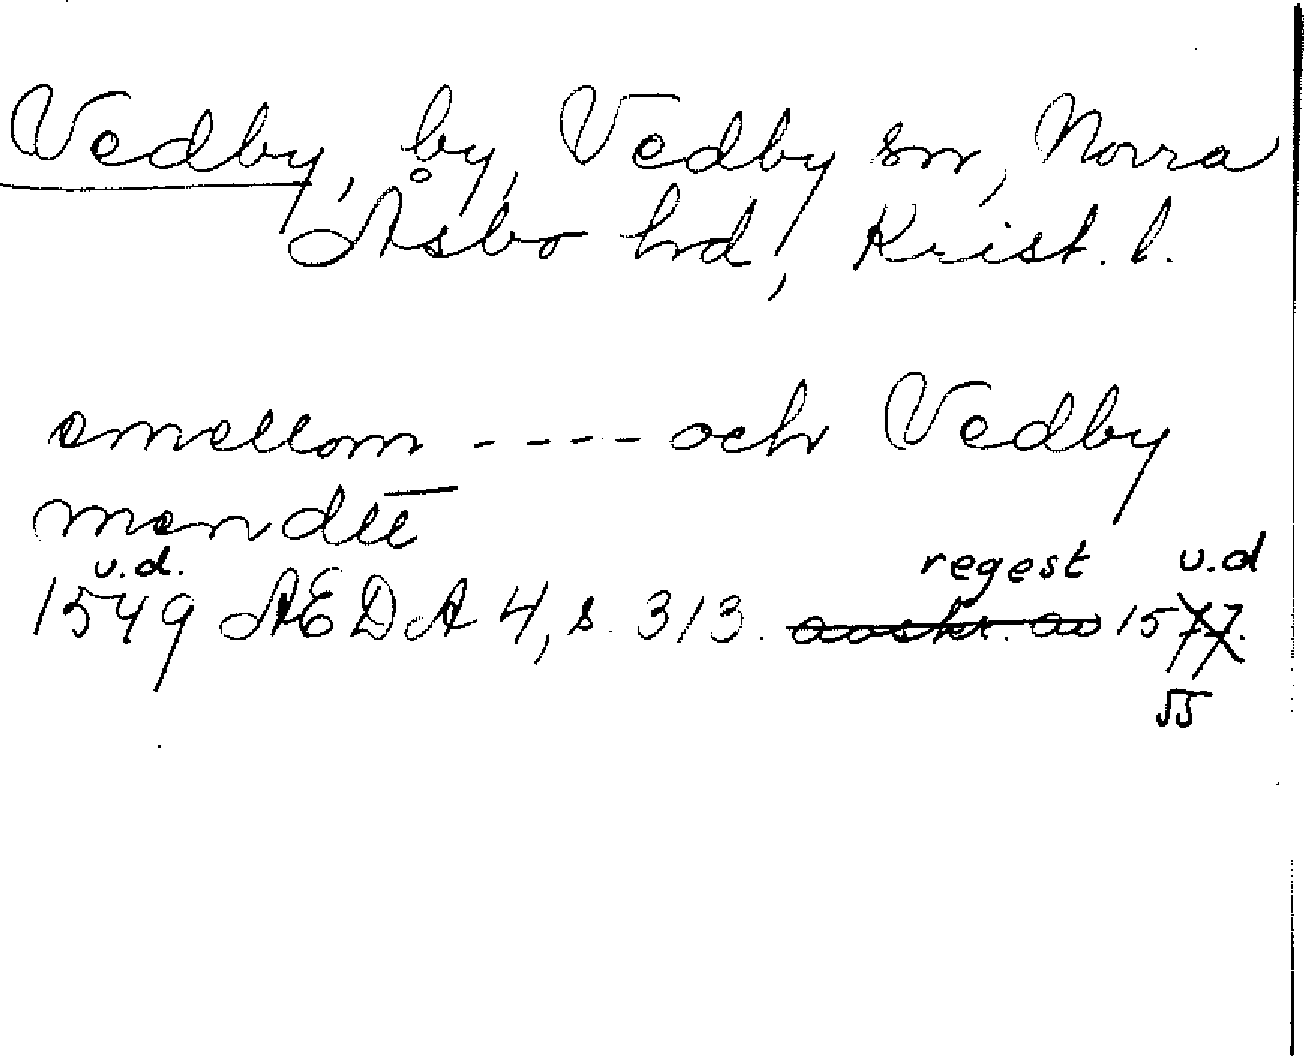 Vedby, by, Vedby sn, Norra
Åsbo hd, Krist. l.
emellom - - - - och Vedby
mendtt
u.d. regest u.d
1549 AEDA 4, s. 313. avskr. av 1577.
55